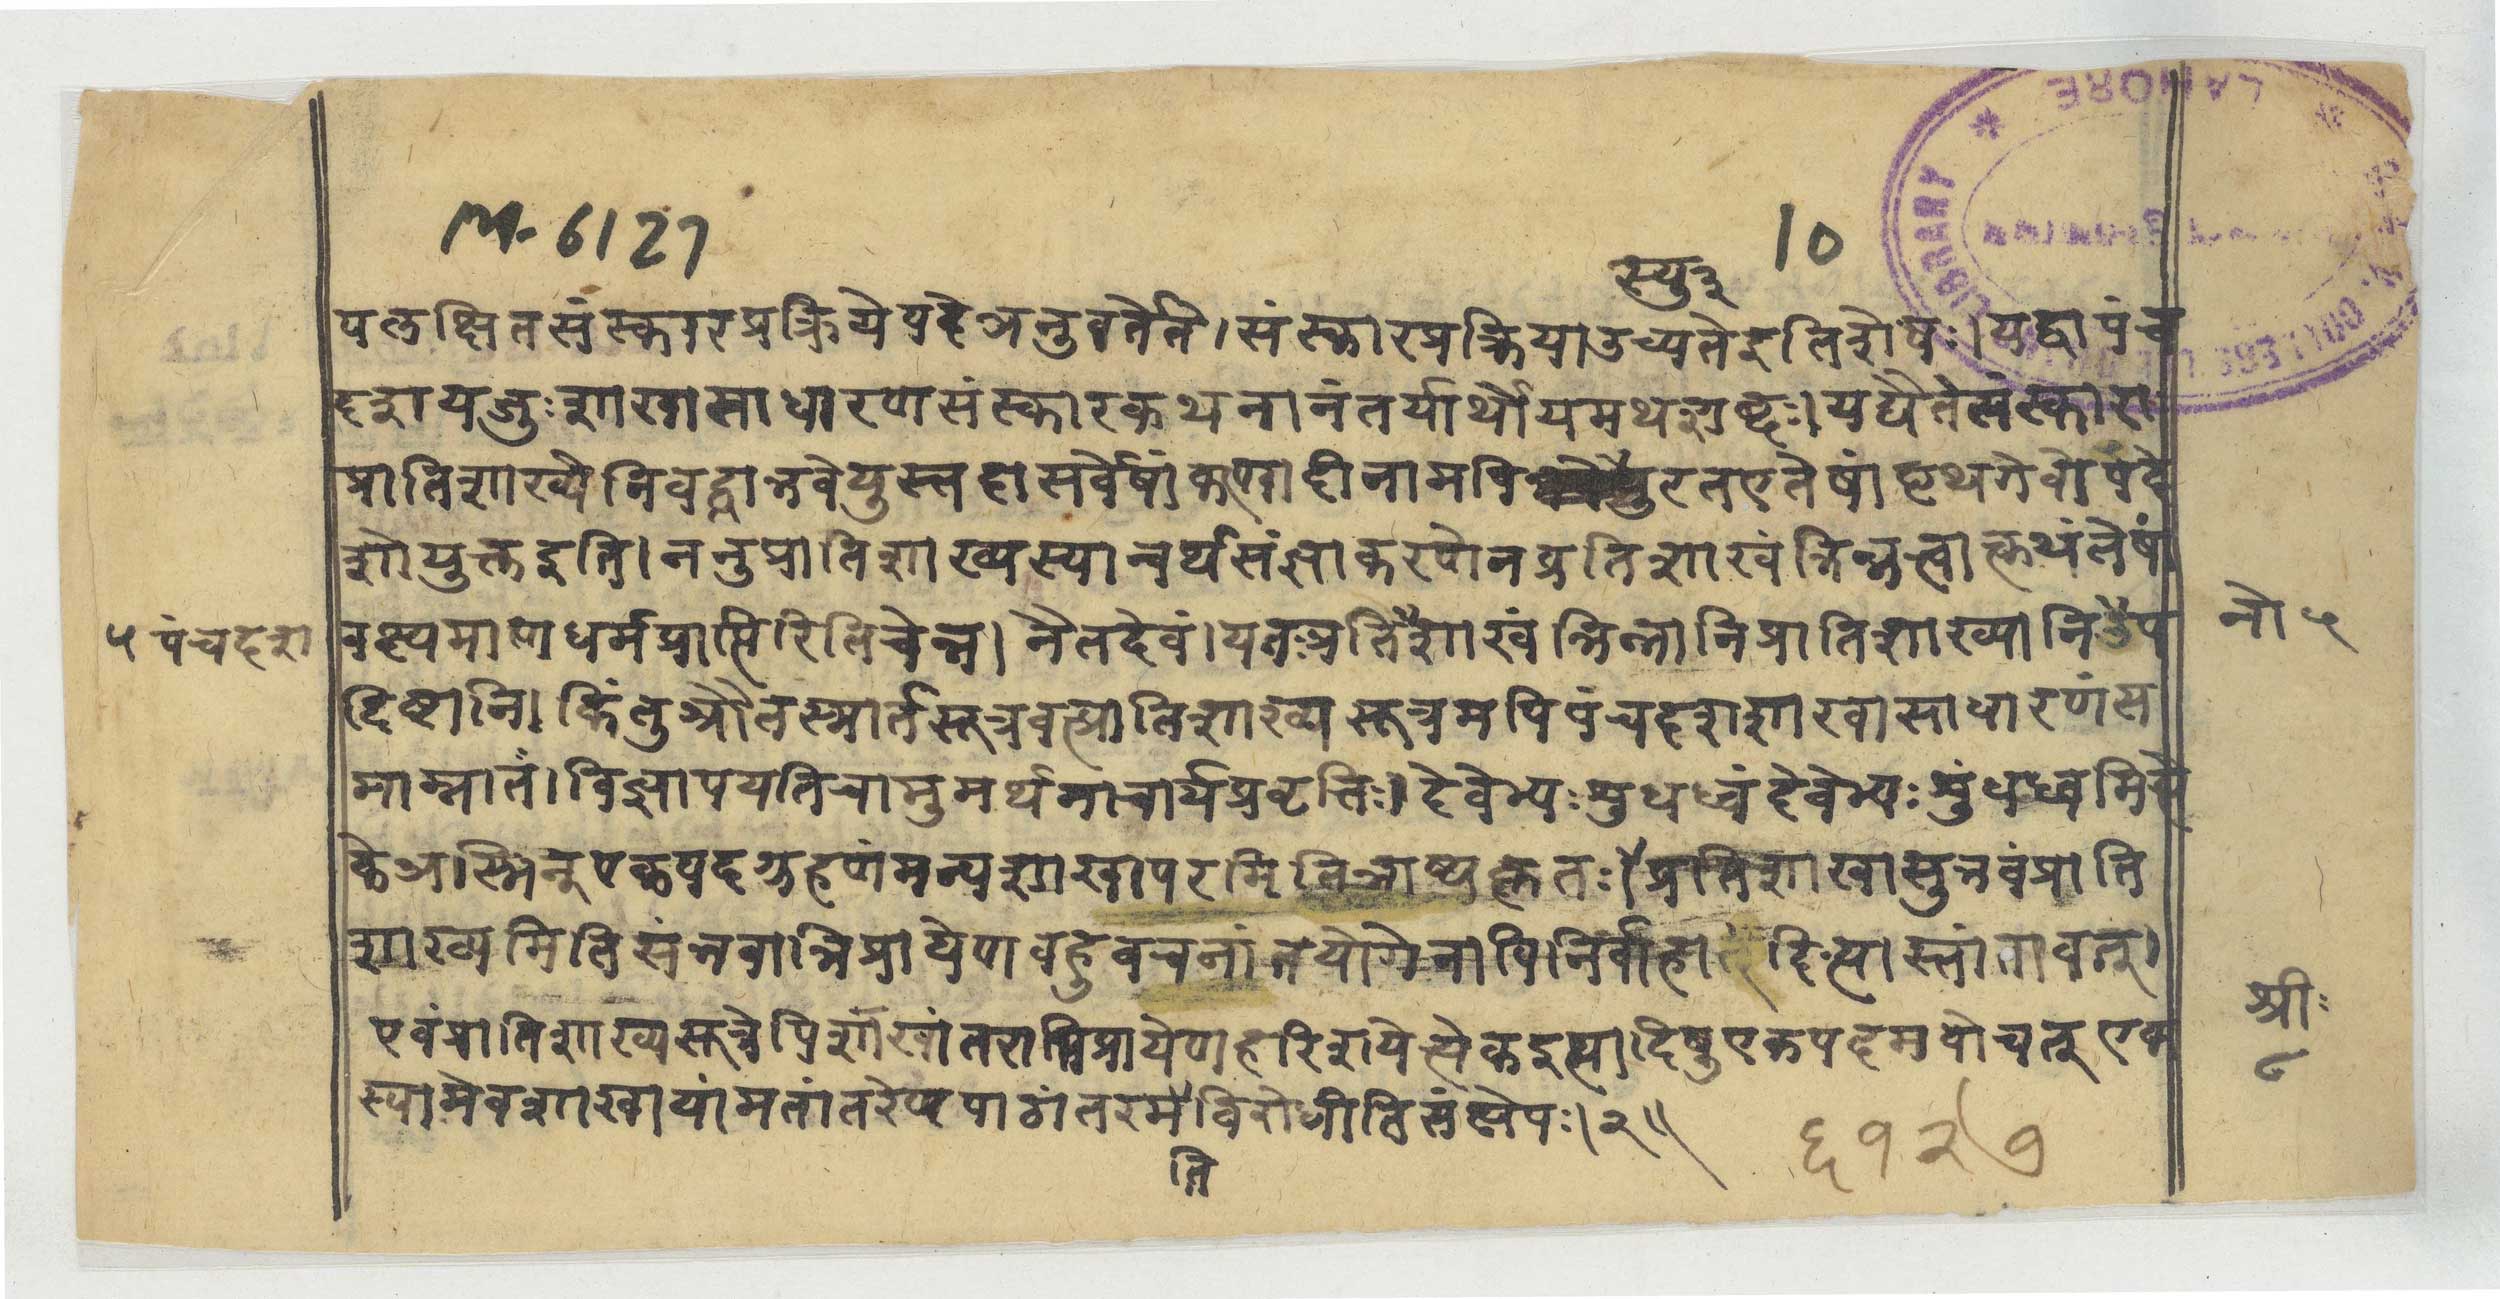 LAHORE
LIBRARY
M. 6127
10
स्यु३
पलक्षितसंस्कारप्रक्रियेपदेअनुवर्तेते। संस्कारप्रक्रियाउच्यतेइतिशेषः। यद्वापंच
दशयजुःशाखासाधारणसंस्कारकथनानंतर्यार्थोयमथशब्दः। यद्येतेसंस्कारा
प्रातिशाख्येनिबद्धाभवेयुस्तदासर्वेषांकण्वादीनामपि रतएतेषांपृथगेवोपदे
शोयुक्तइति। ननुप्रातिशाख्यस्यान्वर्थसंज्ञाकरणेनप्रतिशाखंभिन्नत्वात्कथंतेषां
५ पंचदश
वक्ष्यमाणधर्मप्राप्तिरितिचेन्न। नैतदेवं। यतःप्रतिशाखंभिन्नानिप्रातिशाख्यानिउप
नो ५
दिष्टानि। किंतुश्रौतस्मार्तसूत्रवत्प्रातिशाख्यसूत्रमपिपंचदशशाखासाधारणंस
माम्नातं। विज्ञापयतिचामुमर्थमाचार्यप्रवृत्तिः। देवेभ्यःशुधध्वंदेवेभ्यःशुंधध्वमित्ये
केअस्मिन्एकपदग्रहणंमन्यशाखापरमितिभाष्यकृतः। प्रतिशाखासुभवंप्राति
शाख्यमितिसंभवाभिप्रायेणबहुवचनांतयोगेनापिनिर्वाहात् दित्यास्तांतावत्।
एवंप्रातिशाख्यसूत्रेपिशाखांतराभिप्रायेणहरिशयेत्येकइत्यादिषुएकपदमवोचत्एक
श्रीः
८
स्यामेवशाखायांमतांतरेणपाठांतरमविरोधीतिसंक्षेपः। २॥
ति
६१२७